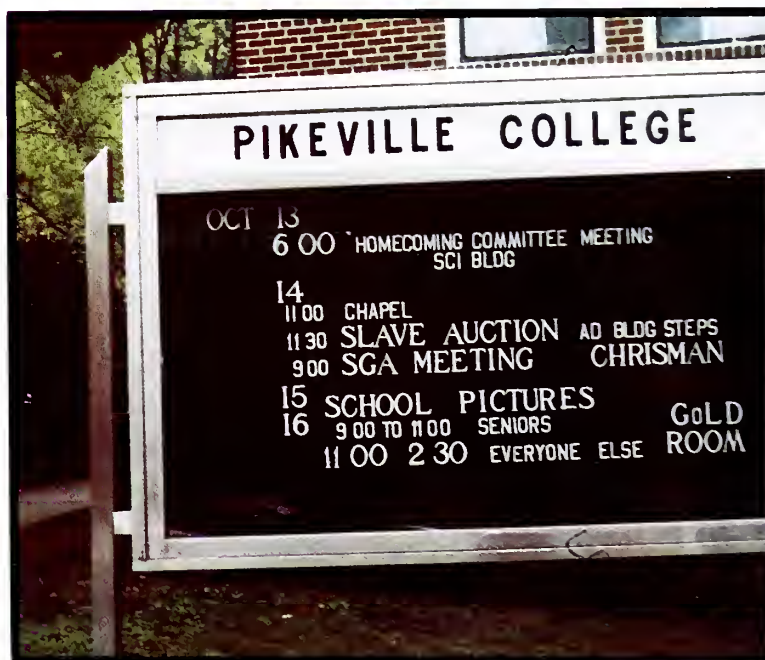 PIKEVILLE COLLEGE
OCT 13
6 00 HOMECOMING COMMITTEE MEETING
SCI BLDG
14
11 00 CHAPEL
11 30 SLAVE AUCTION AD BLDG STEPS
9 00 SGA MEETING CHRISMAN
15 SCHOOL PICTURES
16 9 00 TO 11 00 SENIORS GoLD
11 00 2 30 EVERYONE ELSE ROOM